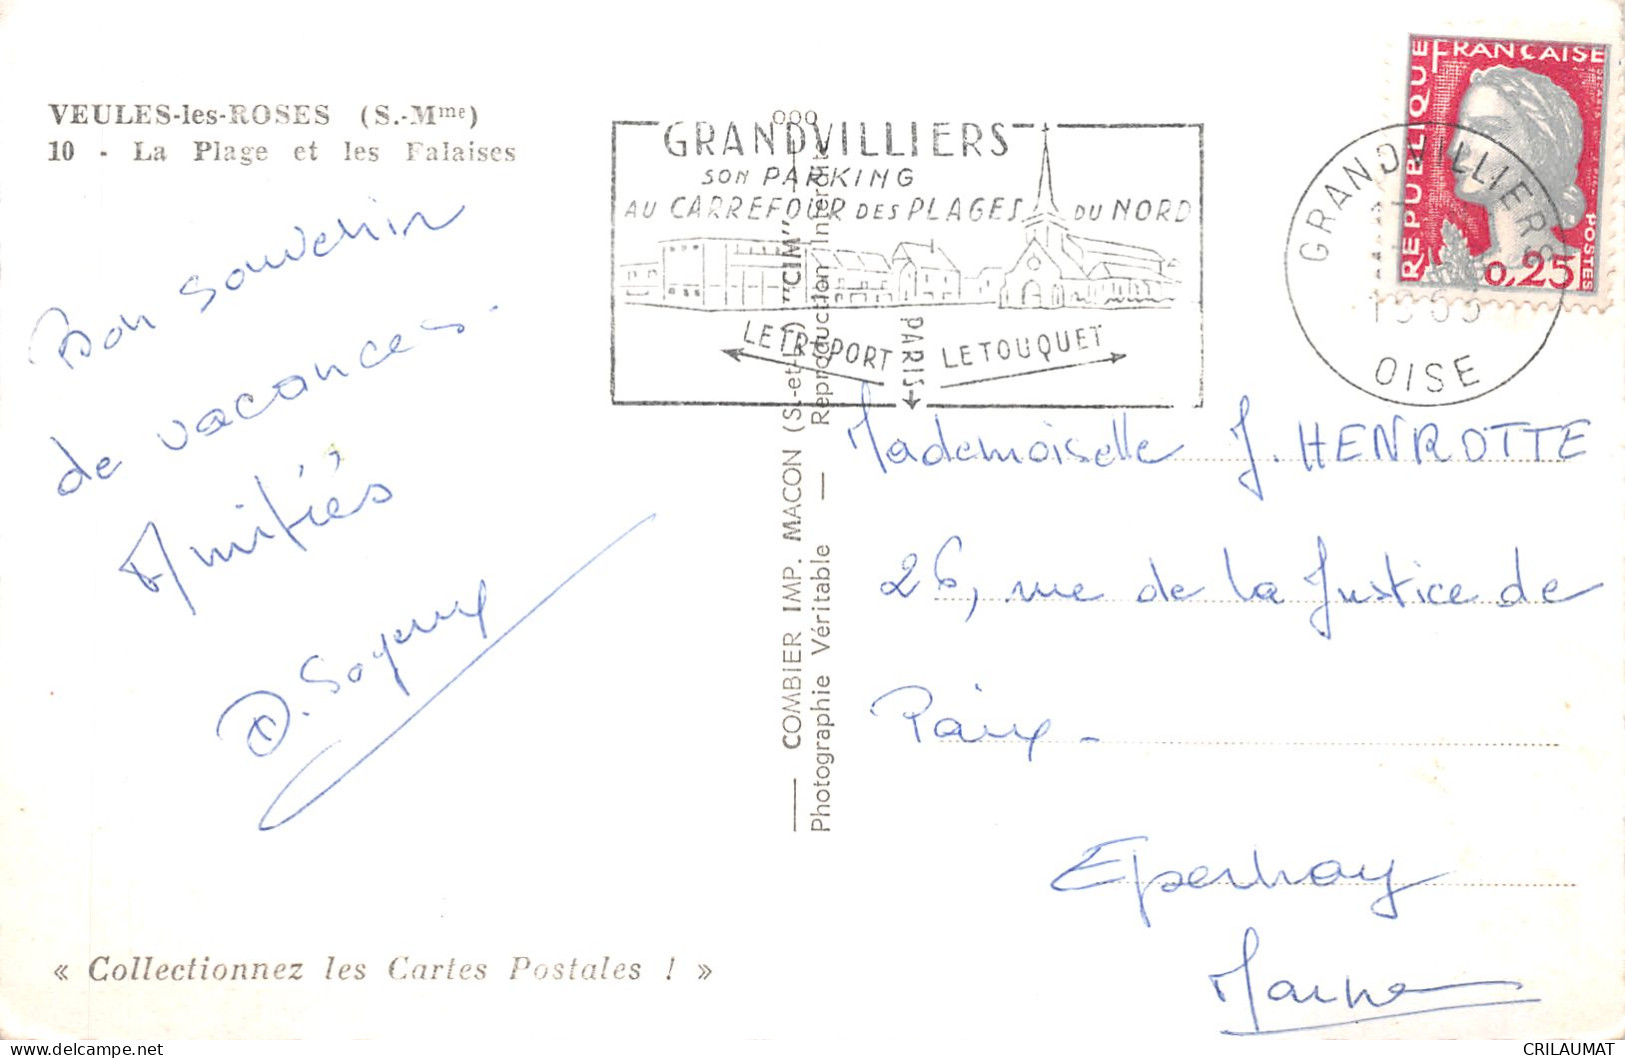 VEULES-les-ROSES (S.-Mme)
10 - La Plage et les Falaises
Bon souvenir
de vacances.
Amitiés
« Collectionnez les Cartes Postales ! »
COMBIER IMP. MACON (S.-et-L.) "CIM"
Photographie Véritable — Reproduction Interdite
GRANDVILLIERS
SON PARKING
AU CARREFOUR DES PLAGES DU NORD
LE TREPORT
PARIS
LE TOUQUET
GRANDVILLIERS
OISE
REPUBLIQUE FRANÇAISE
POSTES
0,25
Mademoiselle J. HENROTTE
26, rue de la Justice de
Paix -
Epernay
Marne
CRILAUMAT